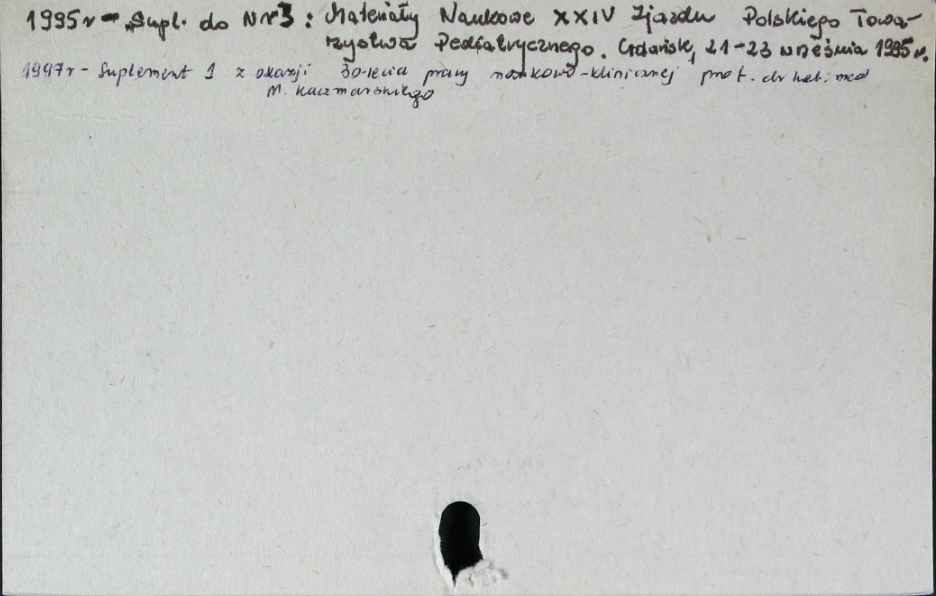 1995 r - Supl. do Nr 3 : Materiały Naukowe XXIV Zjazdu Polskiego Towa-
rzystwa Pediatrycznego. Gdańsk, 21-23 września 1995 r.
1997 r - Suplement 1 z okazji 30-lecia pracy naukowo-klinicznej prof. dr hab. med
M. Kaczmarskiego